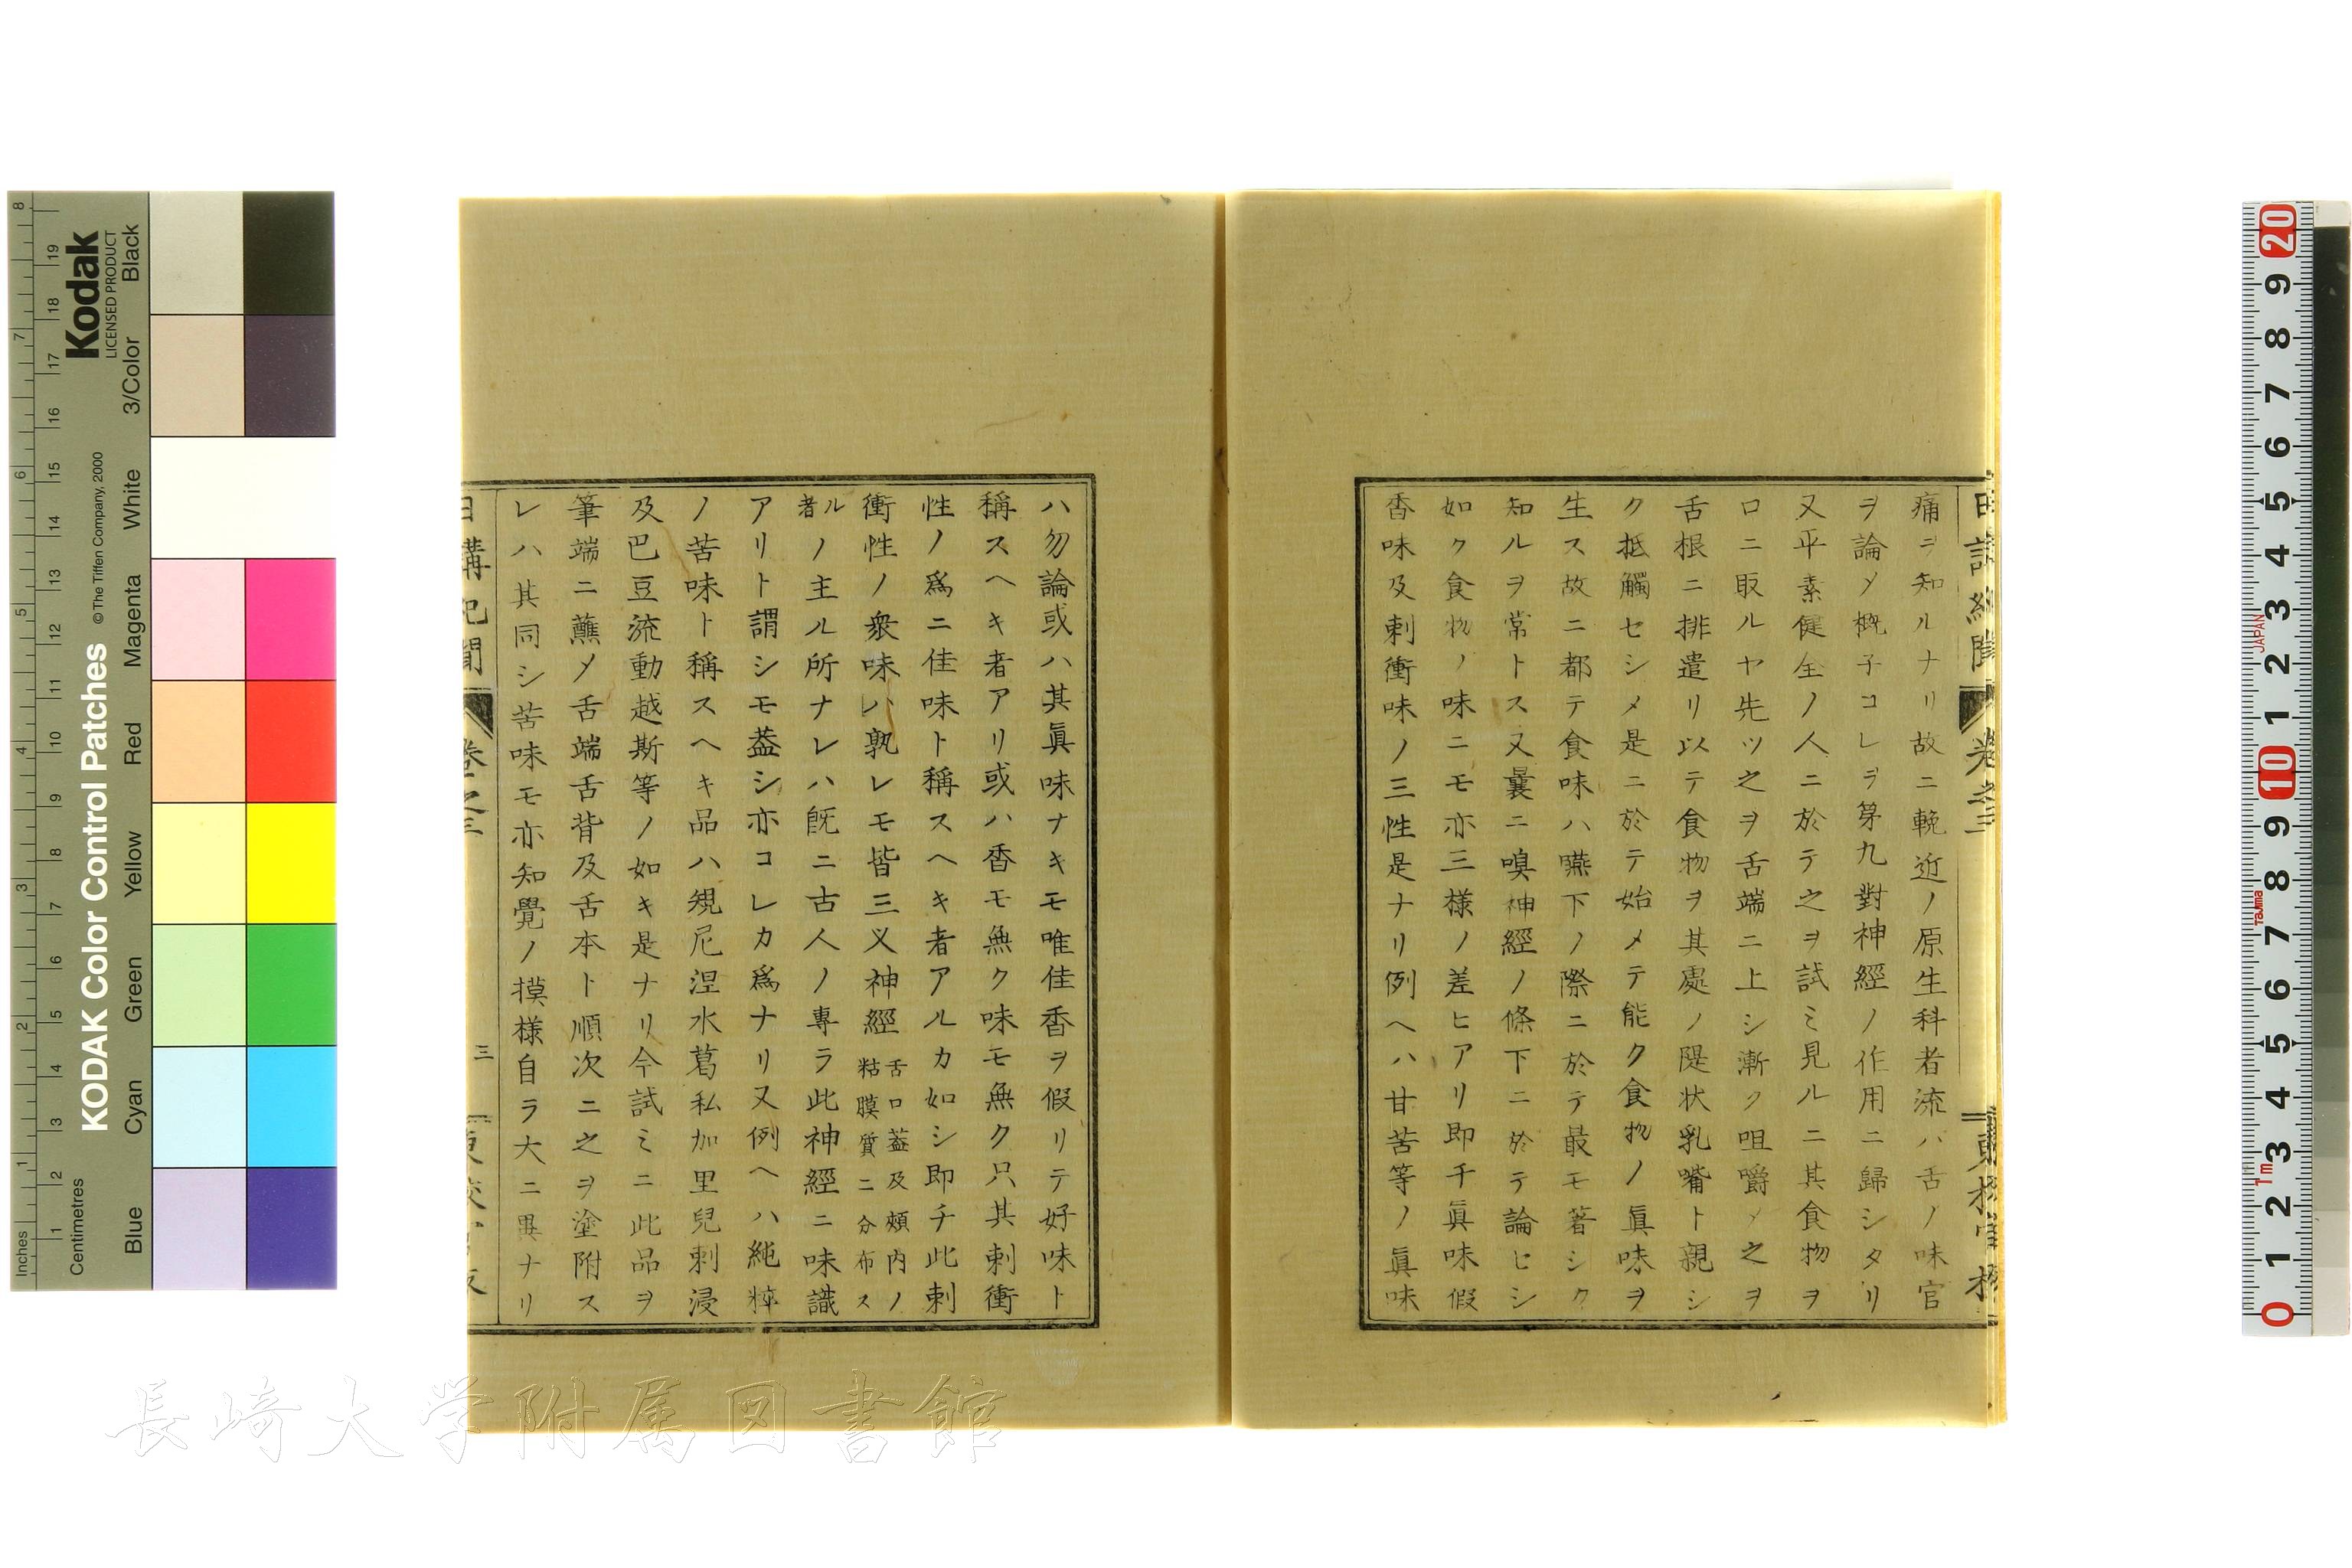 痛ヲ知ルナリ故ニ輓近ノ原生科者流ハ舌ノ味官
ヲ論メ概子コレヲ第九對神經ノ作用ニ歸シタリ
又平素健全ノ人ニ於テ之ヲ試ミ見ルニ其食物ヲ
口ニ取ルヤ先ツ之ヲ舌端ニ上シ漸ク咀嚼メ之ヲ
舌根ニ排遣リ以テ食物ヲ其處ノ隄状乳嘴ト親シ
ク抵觸セシメ是ニ於テ始メテ能ク食物ノ眞味ヲ
生ス故ニ都テ食味ハ嚥下ノ際ニ於テ最モ著シク
知ルヲ常トス又曩ニ嗅神經ノ條下ニ於テ論ヒシ
如ク食物ノ味ニモ亦三様ノ差ヒアリ即チ眞味假
香味及刺衝味ノ三性是ナリ例ヘハ甘苦等ノ眞味
ハ勿論或ハ其眞味ナキモ唯佳香ヲ假リテ好味ト
稱スヘキ者アリ或ハ香モ無ク味モ無ク只其刺衝
性ノ爲ニ佳味ト稱スヘキ者アルカ如シ即チ此刺
衝性ノ衆味ハ孰レモ皆三叉神經舌口蓋及頰内ノ粘膜質ニ分布ス
ル者ノ主ル所ナレハ既ニ古人ノ專ラ此神經ニ味識
アリト謂シモ葢シ亦コレカ爲ナリ又例ヘハ純粹
ノ苦味ト稱スヘキ品ハ規尼涅水葛私加里兒刺浸
及巴豆流動越斯等ノ如キ是ナリ今試ミニ此品ヲ
筆端ニ蘸メ舌端舌背及舌本ト順次ニ之ヲ塗附ス
レハ其同シ苦味モ亦知覺ノ摸様自ラ大ニ異ナリ
日講記聞
卷之三
三
KODAK Color Control Patches
© The Tiffen Company, 2000
Kodak
LICENSED PRODUCT
Inches
Centimetres
Blue
Cyan
Green
Yellow
Red
Magenta
White
3/Color
Black
長崎大学附属図書館
JAPAN
Tajima
1m